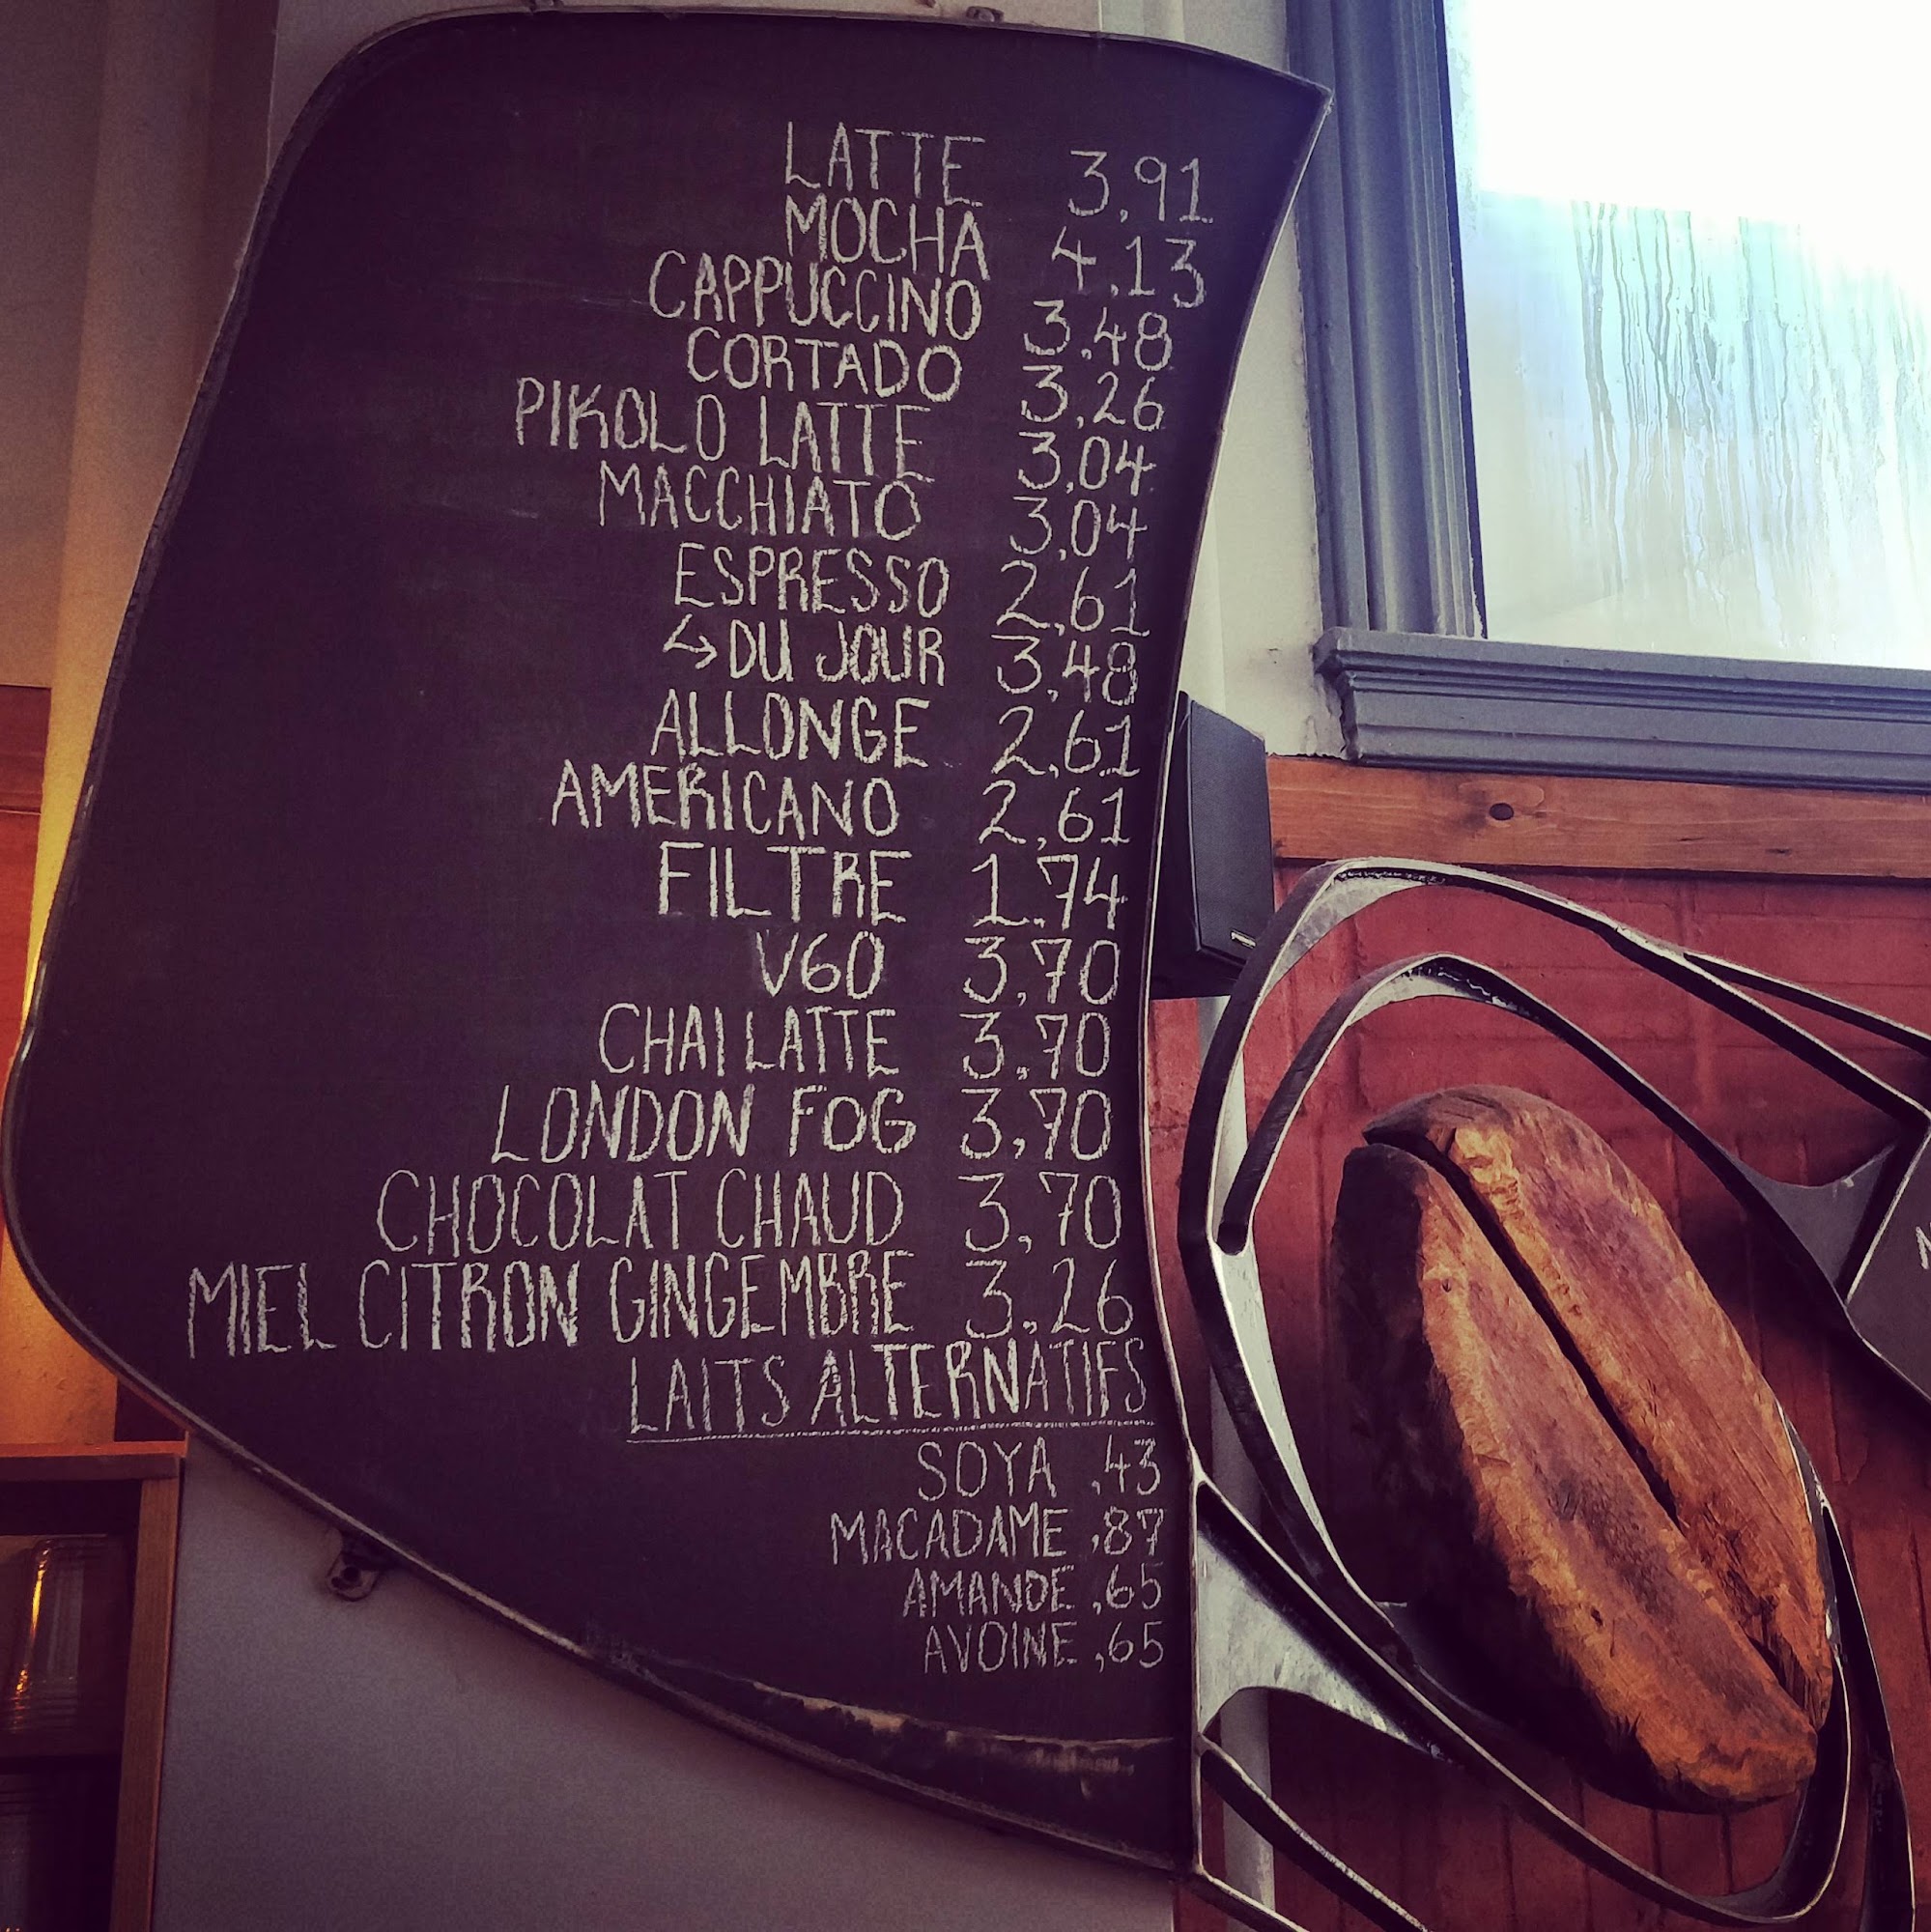 LATTE 3,91
MOCHA 4,13
CAPPUCCINO 3,48
CORTADO 3,26
PIKOLO LATTE 3,04
MACCHIATO 3,04
ESPRESSO 2,61
↳DU JOUR 3,48
ALLONGE 2,61
AMERICANO 2,61
FILTRE 1.74
V60 3,70
CHAI LATTE 3,70
LONDON FOG 3,70
CHOCOLAT CHAUD 3,70
MIEL CITRON GINGEMBRE 3.26
LAITS ALTERNATIFS
SOYA ,43
MACADAME ,87
AMANDE ,65
AVOINE ,65